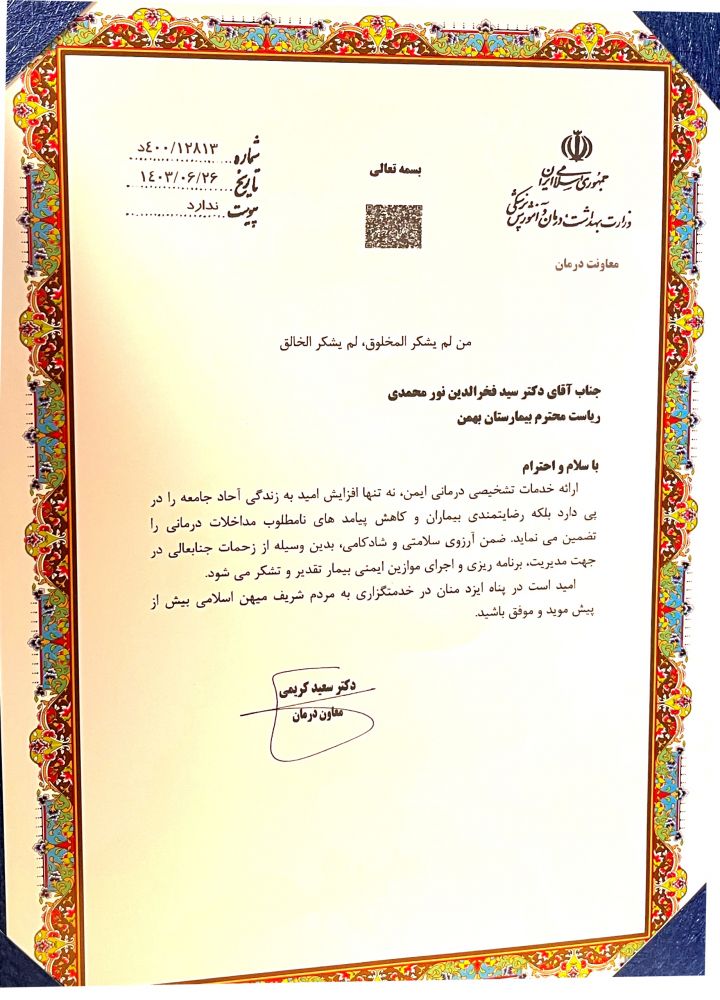 جمهوری اسلامی ایران
وزارت بهداشت، درمان و آموزش پزشکی
معاونت درمان
بسمه تعالی
شماره ۴۰۰/۱۲۸۱۳د
تاریخ ۱۴۰۳/۰۶/۲۶
پیوست ندارد
من لم یشکر المخلوق، لم یشکر الخالق
جناب آقای دکتر سید فخرالدین نور محمدی
ریاست محترم بیمارستان بهمن
با سلام و احترام
ارائه خدمات تشخیصی درمانی ایمن، نه تنها افزایش امید به زندگی آحاد جامعه را در
پی دارد بلکه رضایتمندی بیماران و کاهش پیامد های نامطلوب مداخلات درمانی را
تضمین می نماید. ضمن آرزوی سلامتی و شادکامی، بدین وسیله از زحمات جنابعالی در
جهت مدیریت، برنامه ریزی و اجرای موازین ایمنی بیمار تقدیر و تشکر می شود.
امید است در پناه ایزد منان در خدمتگزاری به مردم شریف میهن اسلامی بیش از
پیش موید و موفق باشید.
دکتر سعید کریمی
معاون درمان